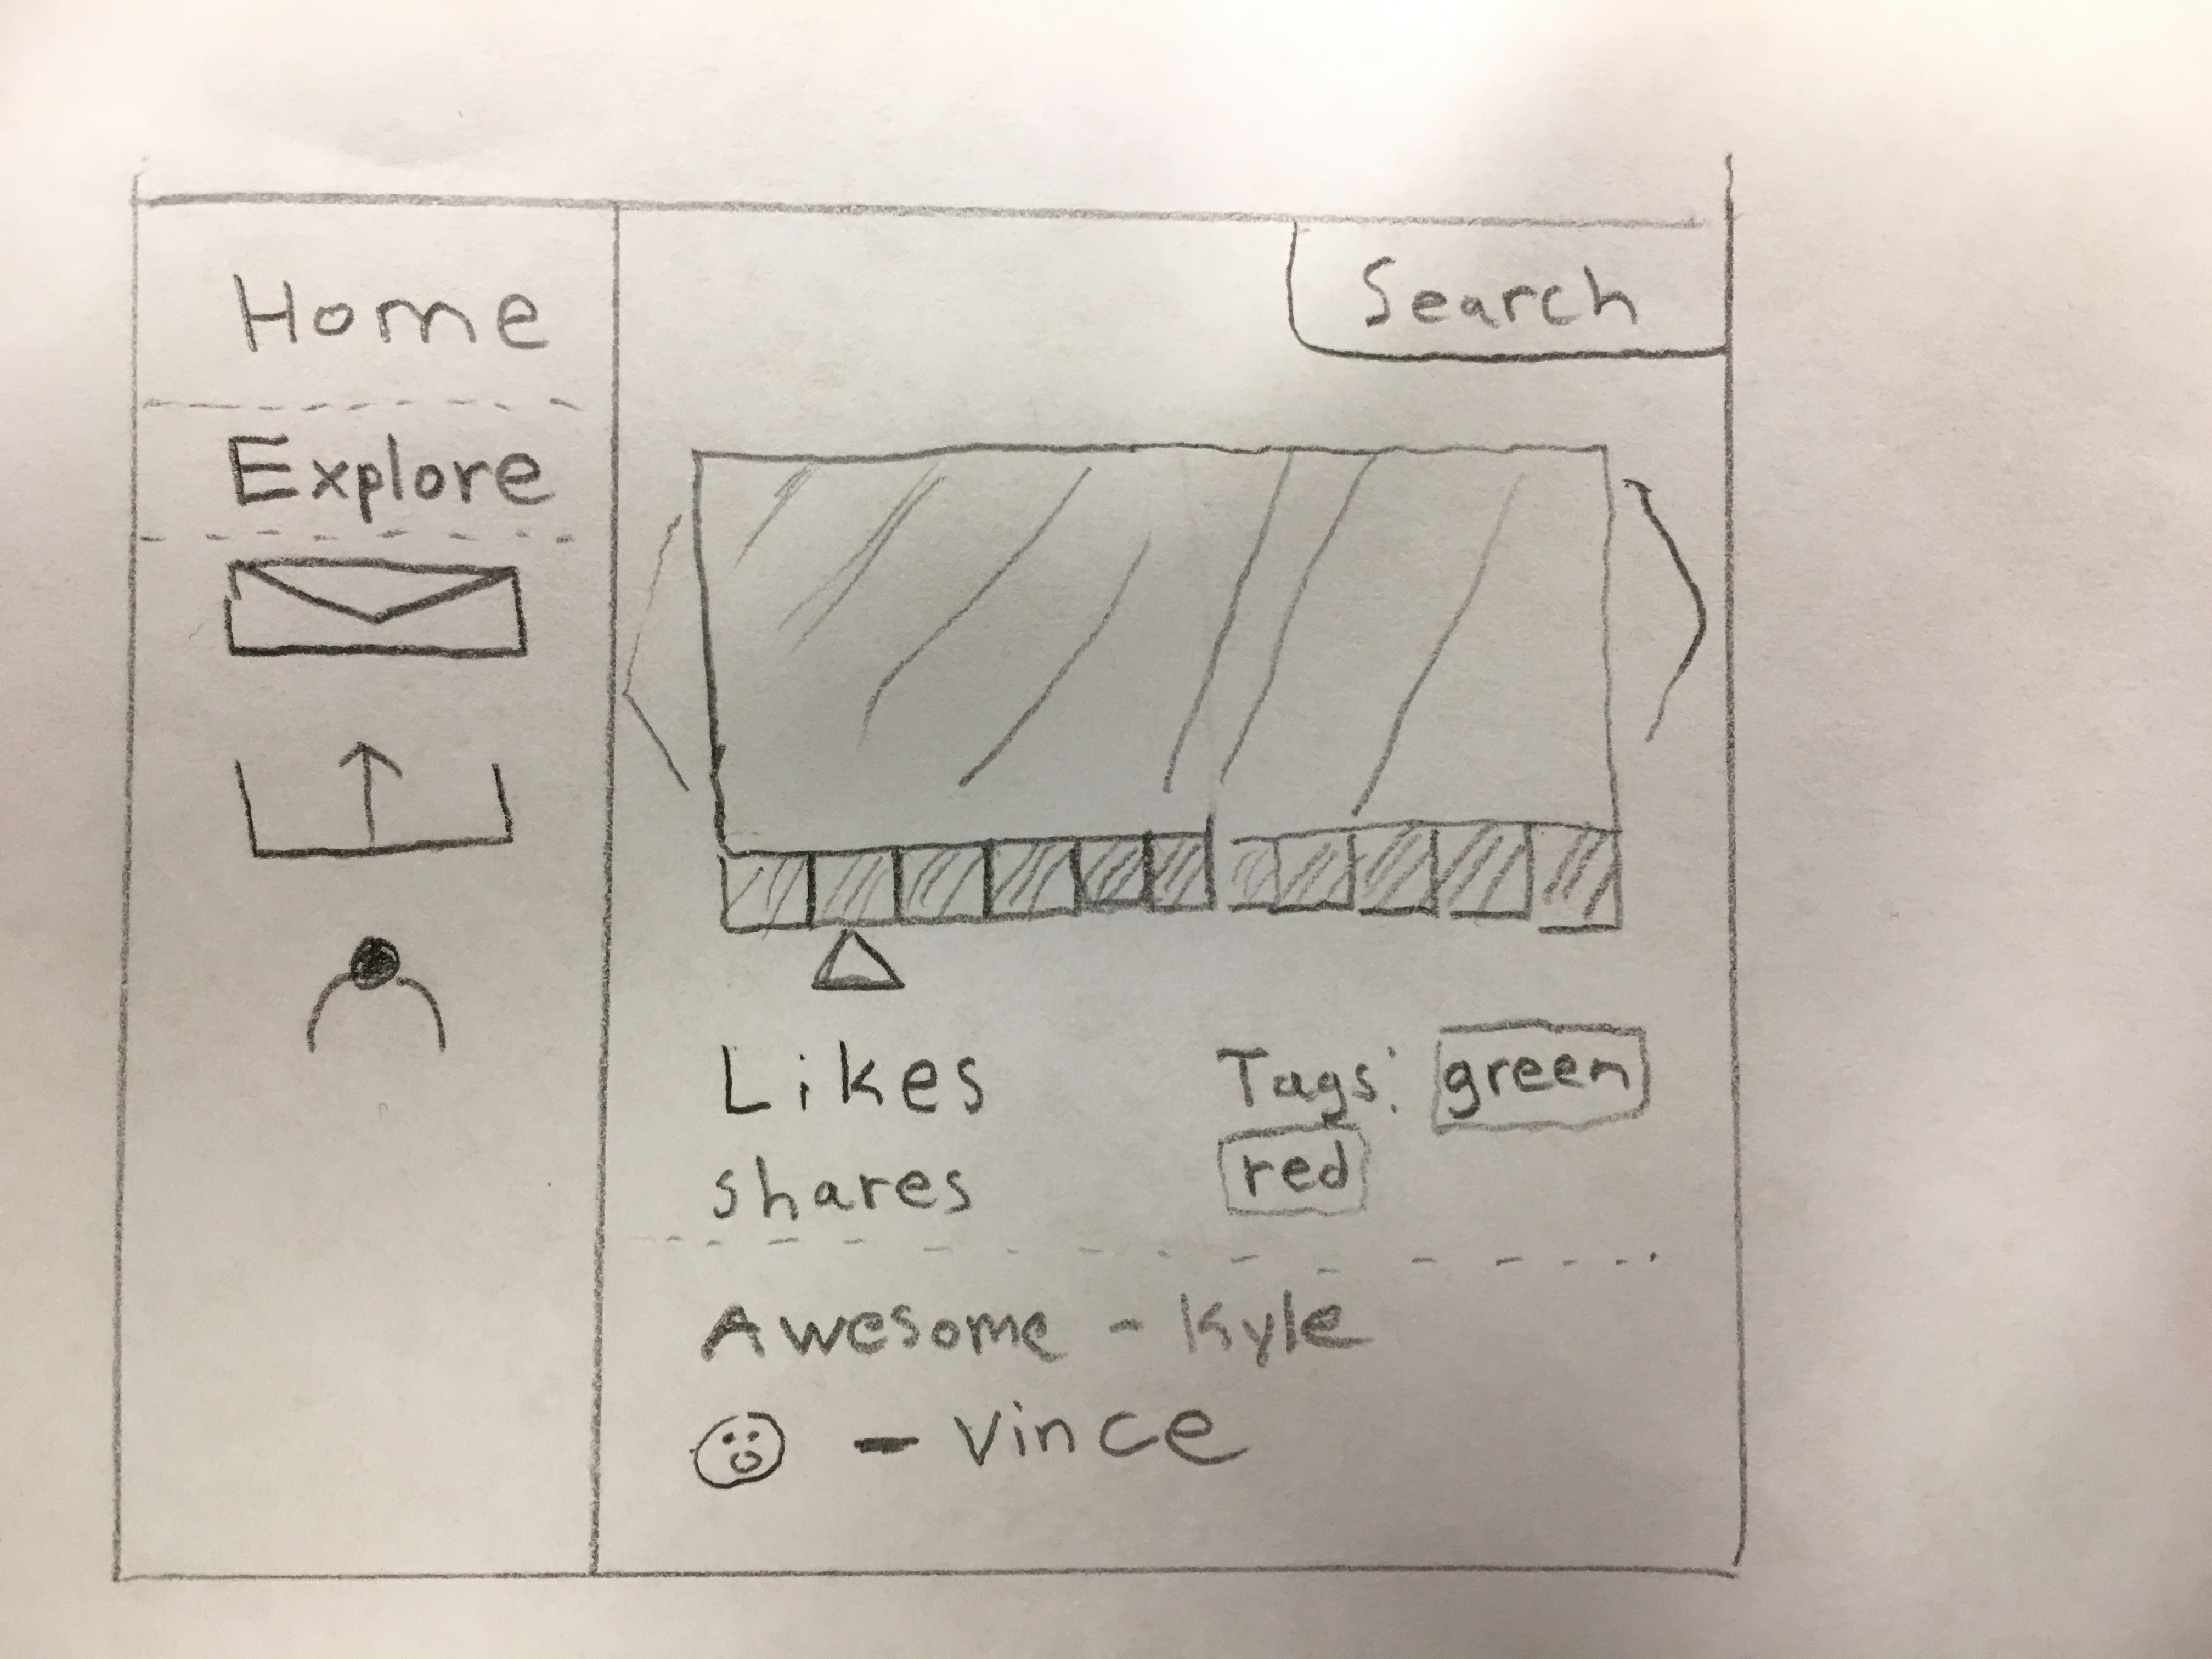 Home
Explore
Search
Likes
shares
Tags: green
red
Awesome - Kyle
- Vince